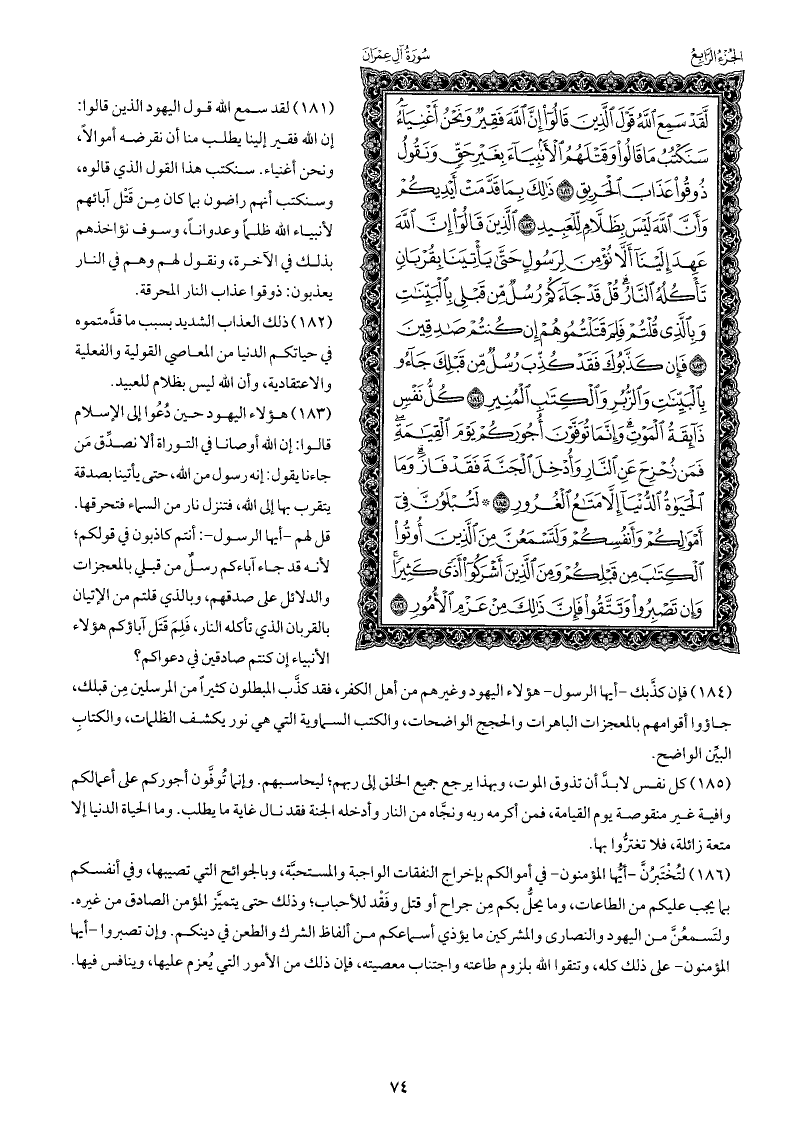 الجزء الرابع
سورة آل عمران
لَّقَدْ سَمِعَ ٱللَّهُ قَوْلَ ٱلَّذِينَ قَالُوٓا۟ إِنَّ ٱللَّهَ فَقِيرٌ وَنَحْنُ أَغْنِيَآءُۘ
سَنَكْتُبُ مَا قَالُوا۟ وَقَتْلَهُمُ ٱلْأَنۢبِيَآءَ بِغَيْرِ حَقٍّ وَنَقُولُ
ذُوقُوا۟ عَذَابَ ٱلْحَرِيقِ ١٨١ ذَٰلِكَ بِمَا قَدَّمَتْ أَيْدِيكُمْ
وَأَنَّ ٱللَّهَ لَيْسَ بِظَلَّامٍ لِّلْعَبِيدِ ١٨٢ ٱلَّذِينَ قَالُوٓا۟ إِنَّ ٱللَّهَ
عَهِدَ إِلَيْنَآ أَلَّا نُؤْمِنَ لِرَسُولٍ حَتَّىٰ يَأْتِيَنَا بِقُرْبَانٍ
تَأْكُلُهُ ٱلنَّارُۗ قُلْ قَدْ جَآءَكُمْ رُسُلٌ مِّن قَبْلِى بِٱلْبَيِّنَٰتِ
وَبِٱلَّذِى قُلْتُمْ فَلِمَ قَتَلْتُمُوهُمْ إِن كُنتُمْ صَٰدِقِينَ
١٨٣ فَإِن كَذَّبُوكَ فَقَدْ كُذِّبَ رُسُلٌ مِّن قَبْلِكَ جَآءُو
بِٱلْبَيِّنَٰتِ وَٱلزُّبُرِ وَٱلْكِتَٰبِ ٱلْمُنِيرِ ١٨٤ كُلُّ نَفْسٍ
ذَآئِقَةُ ٱلْمَوْتِۗ وَإِنَّمَا تُوَفَّوْنَ أُجُورَكُمْ يَوْمَ ٱلْقِيَٰمَةِۖ
فَمَن زُحْزِحَ عَنِ ٱلنَّارِ وَأُدْخِلَ ٱلْجَنَّةَ فَقَدْ فَازَۗ وَمَا
ٱلْحَيَوٰةُ ٱلدُّنْيَآ إِلَّا مَتَٰعُ ٱلْغُرُورِ ١٨٥ ۞ لَتُبْلَوُنَّ فِىٓ
أَمْوَٰلِكُمْ وَأَنفُسِكُمْ وَلَتَسْمَعُنَّ مِنَ ٱلَّذِينَ أُوتُوا۟
ٱلْكِتَٰبَ مِن قَبْلِكُمْ وَمِنَ ٱلَّذِينَ أَشْرَكُوٓا۟ أَذًى كَثِيرًاۚ
وَإِن تَصْبِرُوا۟ وَتَتَّقُوا۟ فَإِنَّ ذَٰلِكَ مِنْ عَزْمِ ٱلْأُمُورِ ١٨٦
(١٨١) لقد سمع الله قول اليهود الذين قالوا:
إن الله فقير إلينا يطلب منا أن نقرضه أموالاً،
ونحن أغنياء. سنكتب هذا القول الذي قالوه،
وسنكتب أنهم راضون بما كان مِن قَتْل آبائهم
لأنبياء الله ظلماً وعدواناً، وسوف نؤاخذهم
بذلك في الآخرة، ونقول لهم وهم في النار
يعذبون: ذوقوا عذاب النار المحرقة.
(١٨٢) ذلك العذاب الشديد بسبب ما قدَّمتموه
في حياتكم الدنيا من المعاصي القولية والفعلية
والاعتقادية، وأن الله ليس بظلام للعبيد.
(١٨٣) هؤلاء اليهود حين دُعُوا إلى الإسلام
قالوا: إن الله أوصانا في التوراة ألا نصدِّق مَن
جاءنا يقول: إنه رسول من الله، حتى يأتينا بصدقة
يتقرب بها إلى الله، فتنزل نار من السماء فتحرقها.
قل لهم -أيها الرسول-: أنتم كاذبون في قولكم؛
لأنه قد جاء آباءكم رسلٌ من قبلي بالمعجزات
والدلائل على صدقهم، وبالذي قلتم من الإتيان
بالقربان الذي تأكله النار، فَلِمَ قَتَل آباؤكم هؤلاء
الأنبياء إن كنتم صادقين في دعواكم؟
(١٨٤) فإن كذَّبك -أيها الرسول- هؤلاء اليهود وغيرهم من أهل الكفر، فقد كذَّب المبطلون كثيراً من المرسلين مِن قبلك،
جاؤوا أقوامهم بالمعجزات الباهرات والحجج الواضحات، والكتب السماوية التي هي نور يكشف الظلمات، والكتابِ
البيِّن الواضح.
(١٨٥) كل نفس لابدَّ أن تذوق الموت، وبهذا يرجع جميع الخلق إلى ربهم؛ ليحاسبهم. وإنما تُوفَّون أجوركم على أعمالكم
وافية غير منقوصة يوم القيامة، فمن أكرمه ربه ونجَّاه من النار وأدخله الجنة فقد نال غاية ما يطلب. وما الحياة الدنيا إلا
متعة زائلة، فلا تغترُّوا بها.
(١٨٦) لتُخْتَبرُنَّ -أيُّها المؤمنون- في أموالكم بإخراج النفقات الواجبة والمستحبَّة، وبالجوائح التي تصيبها، وفي أنفسكم
بما يجب عليكم من الطاعات، وما يحلُّ بكم مِن جراح أو قتل وفَقْد للأحباب؛ وذلك حتى يتميَّز المؤمن الصادق من غيره.
ولتَسمعُنَّ من اليهود والنصارى والمشركين ما يؤذي أسماعكم من ألفاظ الشرك والطعن في دينكم. وإن تصبروا -أيها
المؤمنون- على ذلك كله، وتتقوا الله بلزوم طاعته واجتناب معصيته، فإن ذلك من الأمور التي يُعزم عليها، وينافس فيها.
٧٤